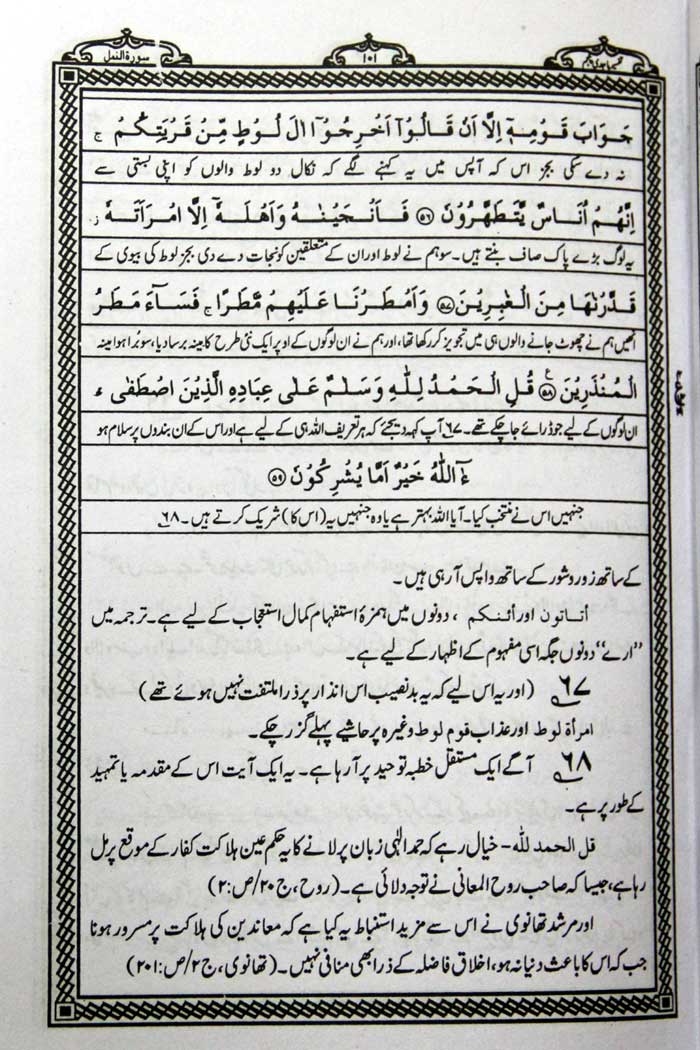 تفسیر ماجدی پنجم
۱۰۱
سورة النمل
جَوَابَ قَوْمِهٖۤ اِلَّاۤ اَنْ قَالُوْۤا اَخْرِجُوْۤا اٰلَ لُوْطٍ مِّنْ قَرْيَتِكُمْ ج
نہ دے سکی بجز اس کہ آپس میں یہ کہنے لگے کہ نکال دو لوط والوں کو اپنی بستی سے
اِنَّهُمْ اُنَاسٌ يَّتَطَهَّرُوْنَ ۵۶ فَاَنْجَيْنٰهُ وَاَهْلَهٗۤ اِلَّا امْرَاَتَهٗ ز
یہ لوگ بڑے پاک صاف بنتے ہیں۔ سو ہم نے لوط اور ان کے متعلقین کو نجات دے دی بجز لوط کی بیوی کے
قَدَّرْنٰهَا مِنَ الْغٰبِرِيْنَ ۵۷ وَاَمْطَرْنَا عَلَيْهِمْ مَّطَرًا ج فَسَآءَ مَطَرُ
انھیں ہم نے چھوٹ جانے والوں ہی میں تجویز کر رکھا تھا، اور ہم نے ان لوگوں کے اوپر ایک نئی طرح کا مینہ برسا دیا، سو بُرا ہوا مینہ
الْمُنْذَرِيْنَ ۵۸ ع قُلِ الْحَمْدُ لِلّٰهِ وَسَلٰمٌ عَلٰى عِبَادِهِ الَّذِيْنَ اصْطَفٰى ء
ان لوگوں کے لیے جو ڈرائے جا چکے تھے۔ ۶۷ آپ کہہ دیجئے کہ ہر تعریف اللہ ہی کے لیے ہے اور اس کے ان بندوں پر سلام ہو
ءٰۤاللّٰهُ خَيْرٌ اَمَّا يُشْرِكُوْنَ ۵۹
جنہیں اس نے منتخب کیا۔ آیا اللہ بہتر ہے یا وہ جنہیں یہ (اس کا) شریک کرتے ہیں۔ ۶۸
کے ساتھ زور و شور کے ساتھ واپس آرہی ہیں۔
أتاتون اور أئنكم ، دونوں میں ہمزۂ استفہام کمال استعجاب کے لیے ہے۔ ترجمہ میں
”ارے“ دونوں جگہ اسی مفہوم کے اظہار کے لیے ہے۔
۶۷ (اور یہ اس لیے کہ یہ بد نصیب اس انذار پر ذرا ملتفت نہیں ہوئے تھے)
امرأة لوط اور عذاب قوم لوط وغیرہ پر حاشیے پہلے گزر چکے۔
۶۸ آگے ایک مستقل خطبہ توحید پر آرہا ہے۔ یہ ایک آیت اس کے مقدمہ یا تمہید
کے طور پر ہے۔
قل الحمد لله۔ خیال رہے کہ حمد الٰہی زبان پر لانے کا یہ حکم عین ہلاکت کفار کے موقع پر مل
رہا ہے، جیسا کہ صاحب روح المعانی نے توجہ دلائی ہے۔ (روح، ج ۲۰/ص:۲)
اور مرشد تھانوی نے اس سے مزید استنباط یہ کیا ہے کہ معاندین کی ہلاکت پر مسرور ہونا
جب کہ اس کا باعث دنیا نہ ہو، اخلاق فاضلہ کے ذرا بھی منافی نہیں۔ (تھانوی، ج ۲/ص:۲۰۱)